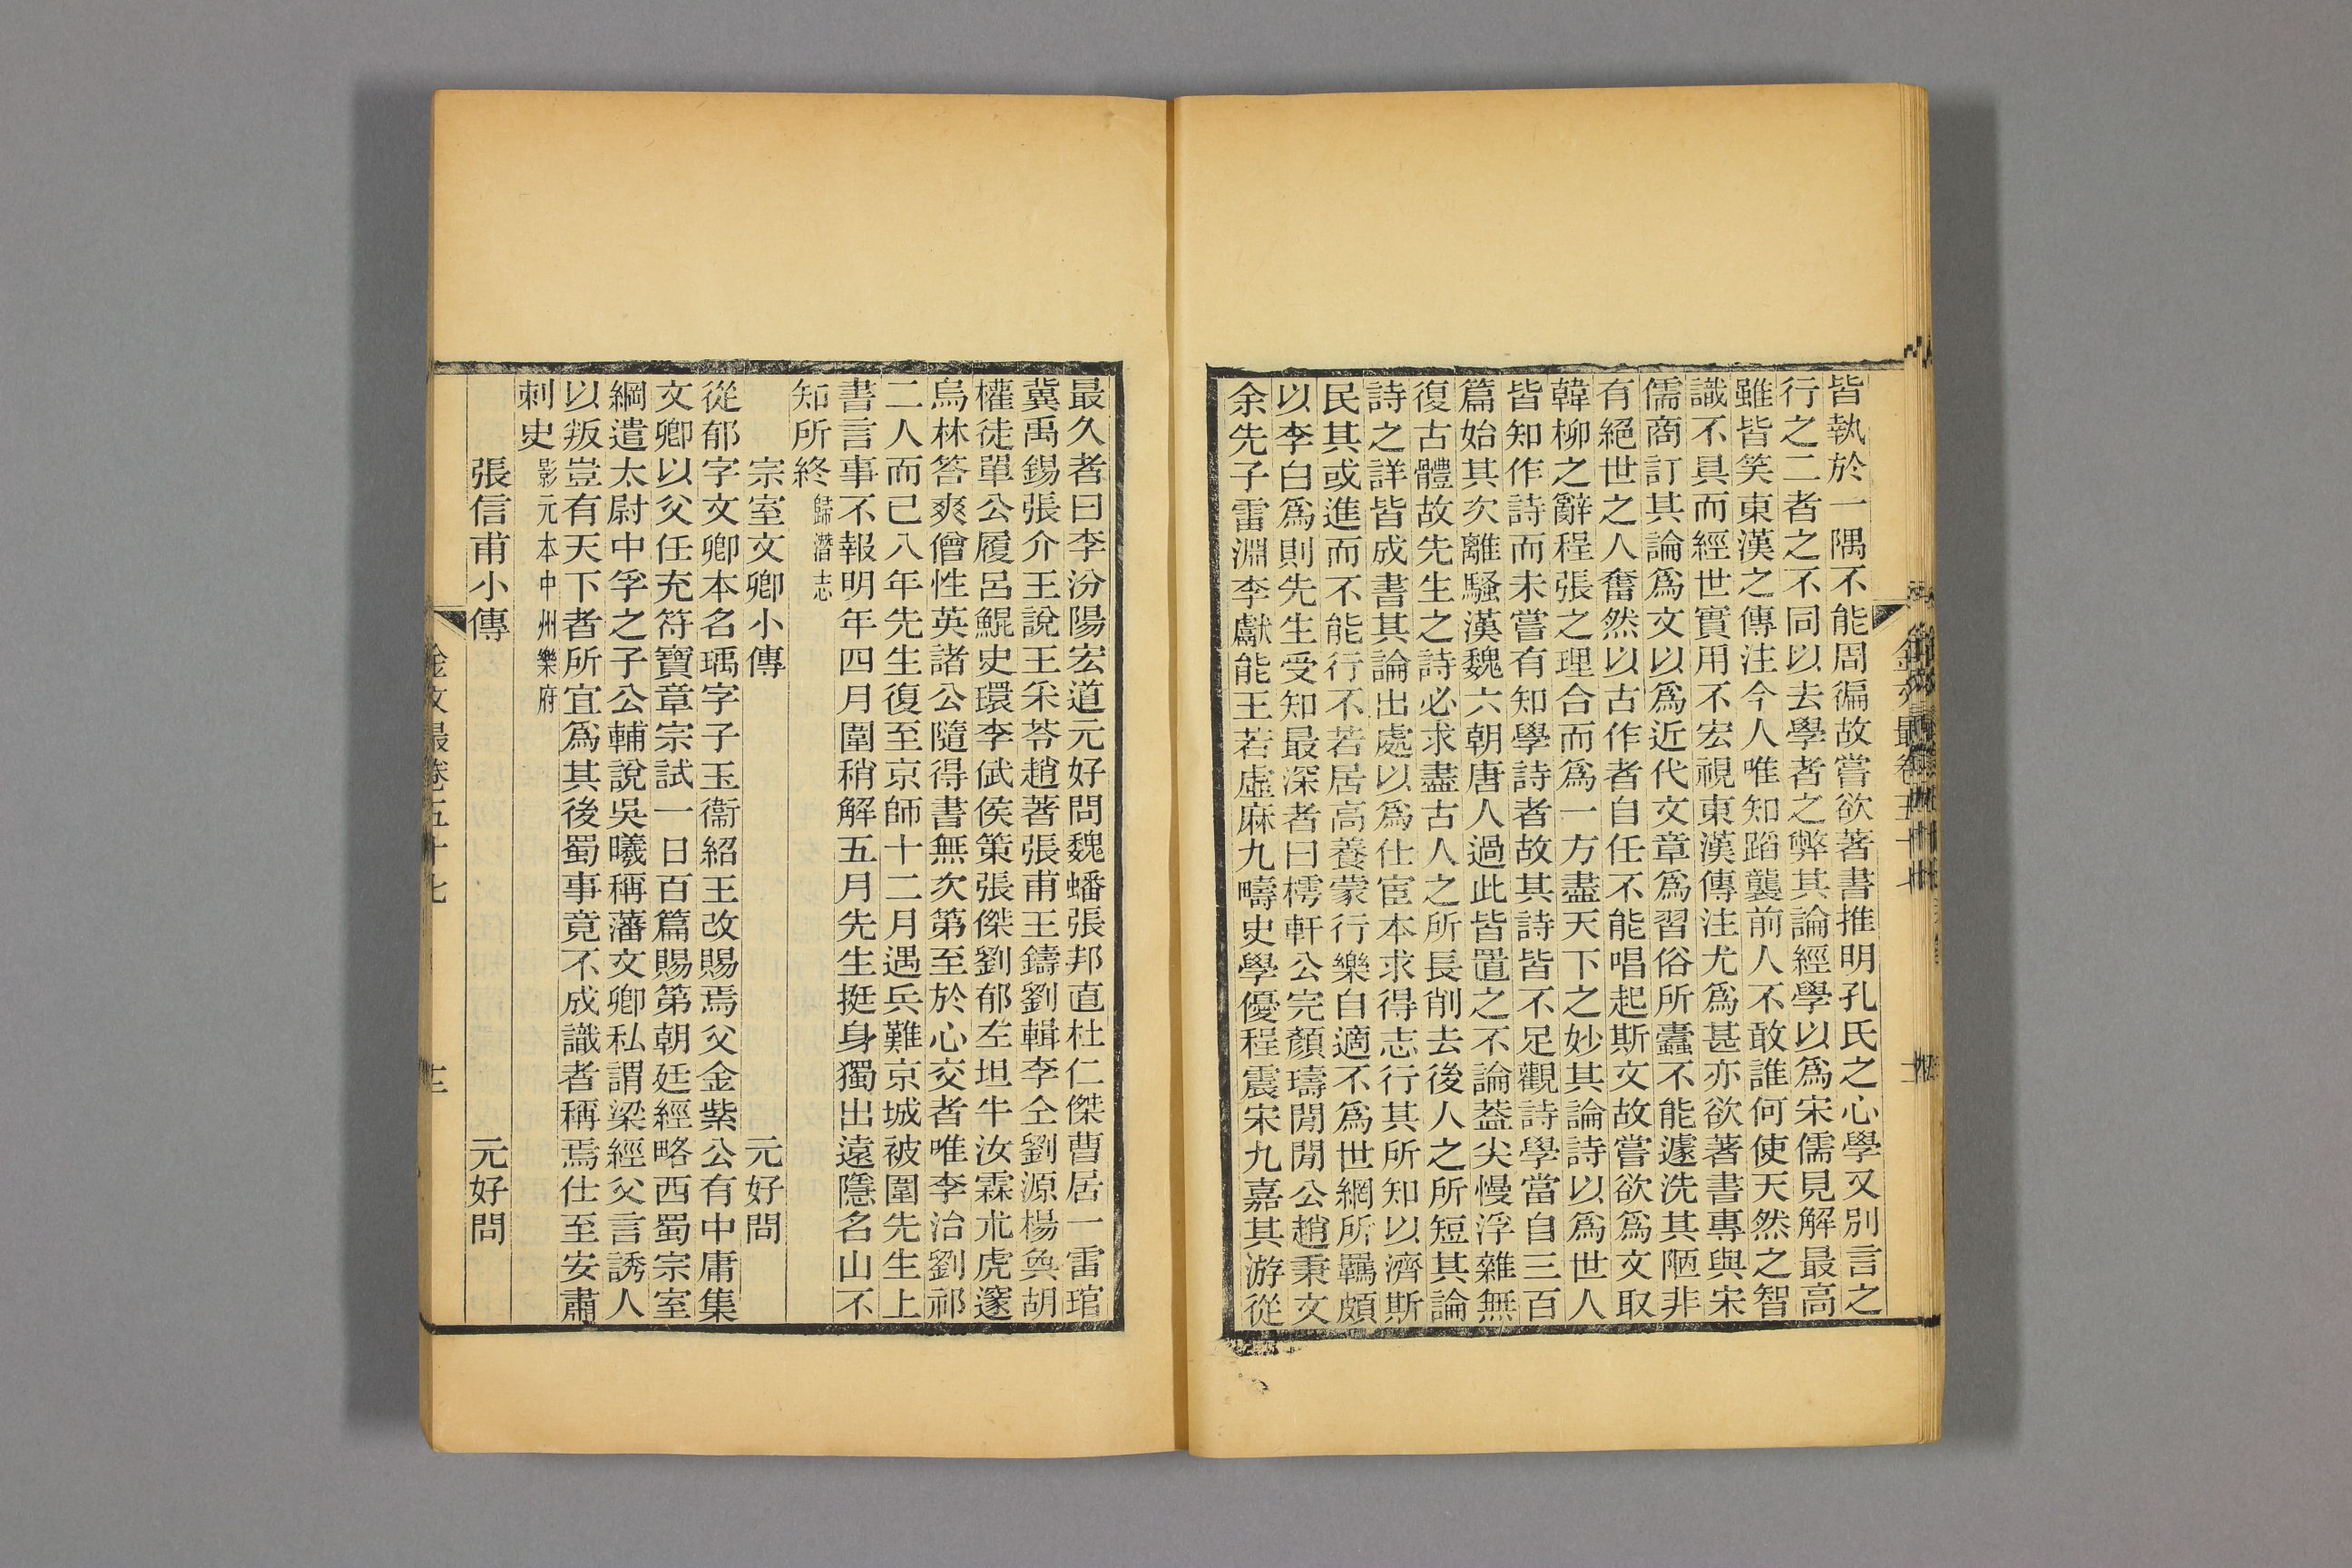 皆執於一隅不能周徧故嘗欲著書推明孔氏之心學又別言之
行之二者之不同以去學者之弊其論經學以爲宋儒見解最高
雖皆笑東漢之傳注今人唯知蹈襲前人不敢誰何使天然之智
識不具而經世實用不宏視東漢傳注尤爲甚亦欲著書專與宋
儒商訂其論爲文以爲近代文章爲習俗所蠹不能遽洗其陋非
有絕世之人奮然以古作者自任不能唱起斯文故嘗欲爲文取
韓柳之辭程張之理合而爲一方盡天下之妙其論詩以爲世人
皆知作詩而未嘗有知學詩者故其詩皆不足觀詩學當自三百
篇始其次離騷漢魏六朝唐人過此皆置之不論葢尖慢浮雜無
復古體故先生之詩必求盡古人之所長削去後人之所短其論
詩之詳皆成書其論出處以爲仕宦本求得志行其所知以濟斯
民其或進而不能行不若居高養蒙行樂自適不爲世網所羈頗
以李白爲則先生受知最深者曰樗軒公完顏璹閒閒公趙秉文
余先子雷淵李獻能王若虛麻九疇史學優程震宋九嘉其游從
最久者曰李汾陽宏道元好問魏蟠張邦直杜仁傑曹居一雷琯
冀禹錫張介王說王采苓趙著張甫王鑄劉輯李仝劉源楊奐胡
權徒單公履呂鯤史環李侃侯策張傑劉郁左坦牛汝霖朮虎邃
烏林答爽僧性英諸公隨得書無次第至於心交者唯李治劉祁
二人而已八年先生復至京師十二月遇兵難京城被圍先生上
書言事不報明年四月圍稍解五月先生挺身獨出遠隱名山不
知所終 歸潛志
宗室文卿小傳 元好問
從郁字文卿本名瑀字子玉衞紹王改賜焉父金紫公有中庸集
文卿以父任充符寶章宗試一日百篇賜第朝廷經略西蜀宗室
綱遣太尉中孚之子公輔說吳曦稱藩文卿私謂梁經父言誘人
以叛豈有天下者所宜爲其後蜀事竟不成識者稱焉仕至安肅
刺史 影元本中州樂府
張信甫小傳 元好問
金文最卷五十七 十三